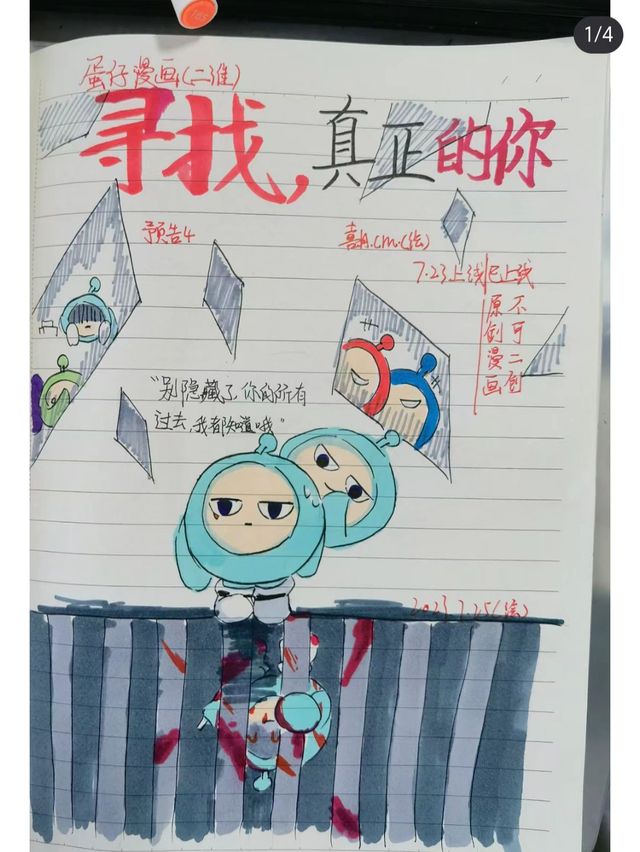 1/4
蛋仔漫画(二维)
寻找,真正的你
预告4
7.23上线已上线
原创漫画
不可二创
"别隐藏了你的所有
过去,我都知道哦"
2023 7.25(绘)